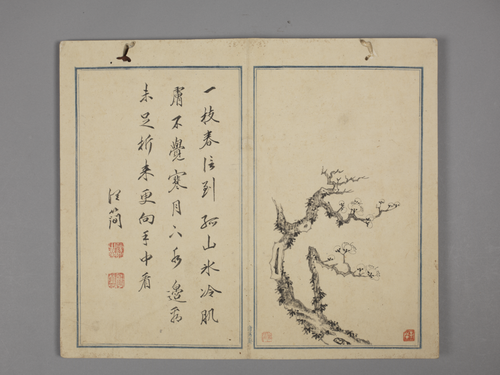 一枝春信到孤山氷冷肌
膚不覺寒月下水邊
未足折来更向手中看
簡